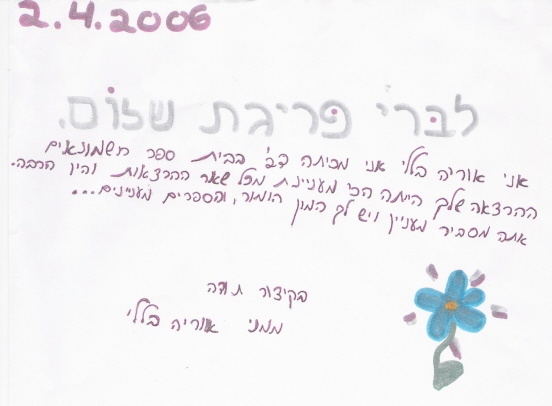 2.4.2006
לברי פריבת שלום.
אני אוריה בללי אני מכיתה בבית ספר חשמונאים
ההרצאה שלך היתה הכי מעניינת מכל שאר ההרצאות והיו הרבה.
אתה מסביר מעניין ויש לך המון הומור, והספרים מעניינים...
בקיצור תודה
ממני אוריה בללי